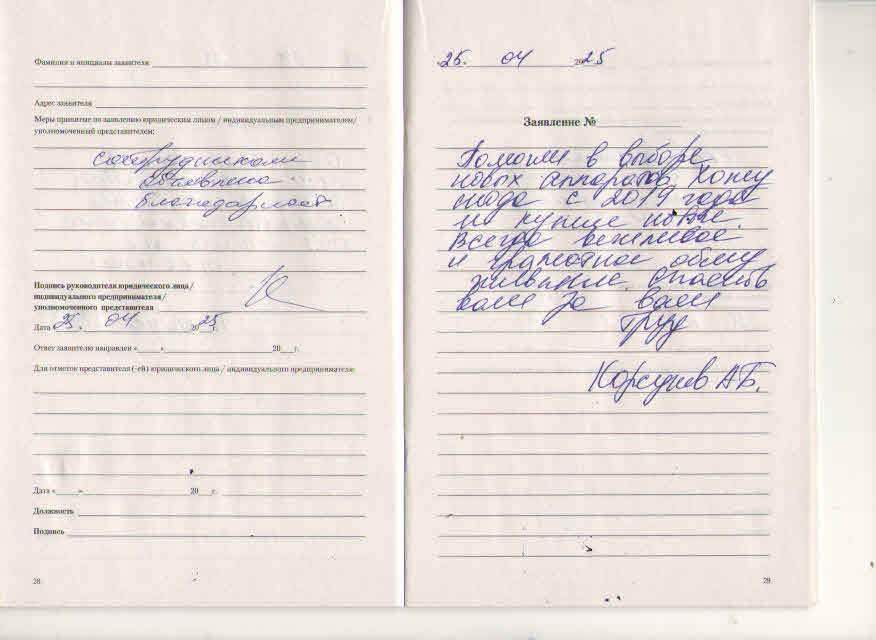 Фамилия и инициалы заявителя
Адрес заявителя
Меры принятые по заявлению юридическим лицом / индивидуальным предпринимателем/
уполномоченный представителем:
сотрудникам
объявлена
благодарность
Подпись руководителя юридического лица/
индивидуального предпринимателя/
уполномоченного представителя
Дата «25. 04 2025
Ответ заявителю направлен «____»____ 20__г.
Для отметок представителя (-ей) юридического лица / индивидуального предпринимателя:
Дата «____»____ 20__г.
Должность
Подпись
28
«25. 04 2025
Заявление №
Помогли в выборе
новых аппаратов. Хожу
сюда с 2019 года
и купил новые.
Всегда вежливое
и грамотное обслу
живание. Спасибо
вам за ваш
труд
Корсунев А.Б.
29